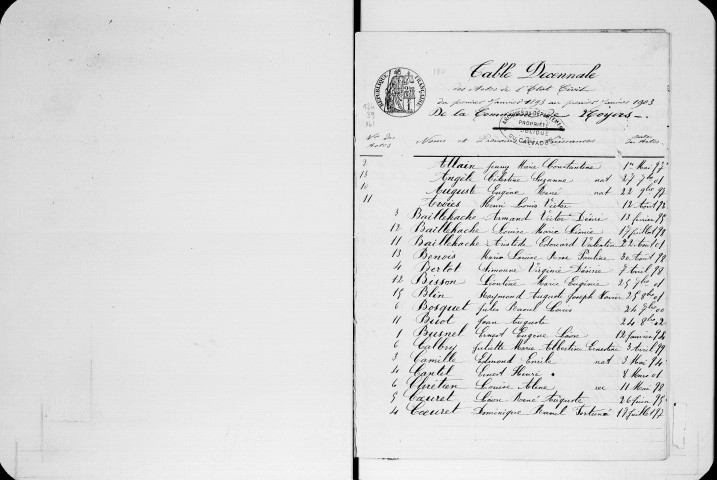 Table Decennale
des Actes de l'Etat Civil
du premier Janvier 1893 au premier Janvier 1903
De la Commune de Noyers
RÉPUBLIQUE FRANÇAISE
ARCHIVES DÉPARTEM
PROPRIÉTÉ
PUBLIQUE
DU CALVADOS
Nos des Actes Noms et Prénoms Naissances Dates des Actes
9 Allain Jenny Marie Constantine 1er Mai
13 Angèle Célestine Suzanne nat 27 7bre 01
10 Auguste Eugène René nat 22
11 Henri Louis Victor 12 Août
3 Baillehache Armand Victor Désiré 13 février 95
12 Baillehache Louise Maria 17 juillet 98
11 Baillehache Aristide Edouard Valentin 22 Août 01
13 Benois Maria Louise Rose Pauline 30 Août 98
4 Bertot Simonne Virginie Désirée 7 Avril 98
12 Bisson Léontine Marie Eugénie 25 7bre 01
15 Blin Raymond Auguste Joseph Xavier 25 8bre 01
6 Bosquet Jules Raoul Louis 24 00
11 Buot Jean Auguste 24 8bre 02
1 Busnel Ernest Eugène Léon 12 Janvier 94
6 Calbry Juliette Marie Albertine Ernestine 3 Avril 99
3 Camille Edmond Emile nat 3 Mai 94
4 Cantel Ernest Henri 8 Mars 01
6 Chrétien Louise Aline rec 11 Mai 98
5 Coeuret Léon René Auguste 26 juin 95
4 Coeuret Dominique Raoul Fortuné 17 juillet